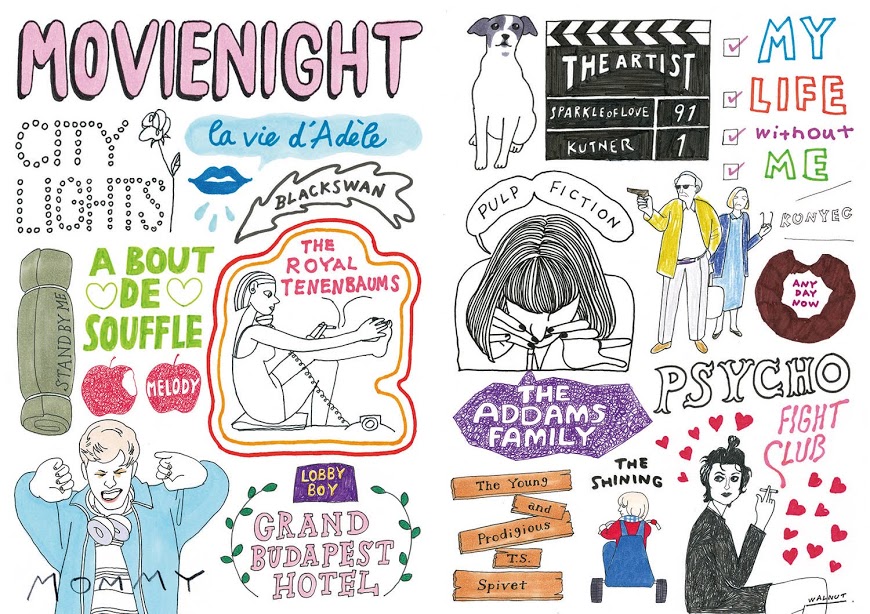 MOVIENIGHT
CITY
LIGHTS
la vie d'Adèle
BLACKSWAN
STAND BY ME
A BOUT
DE
SOUFFLE
MELODY
THE
ROYAL
TENENBAUMS
MOMMY
LOBBY
BOY
GRAND
BUDAPEST
HOTEL
THE ARTIST
SPARKLE OF LOVE 91
KUTNER 1
MY
LIFE
without
ME
PULP FICTION
KONYEC
ANY
DAY
NOW
PSYCHO
THE
ADDAMS
FAMILY
FIGHT
CLUB
The Young
and
Prodigious
T.S.
Spivet
THE
SHINING
WALNUT